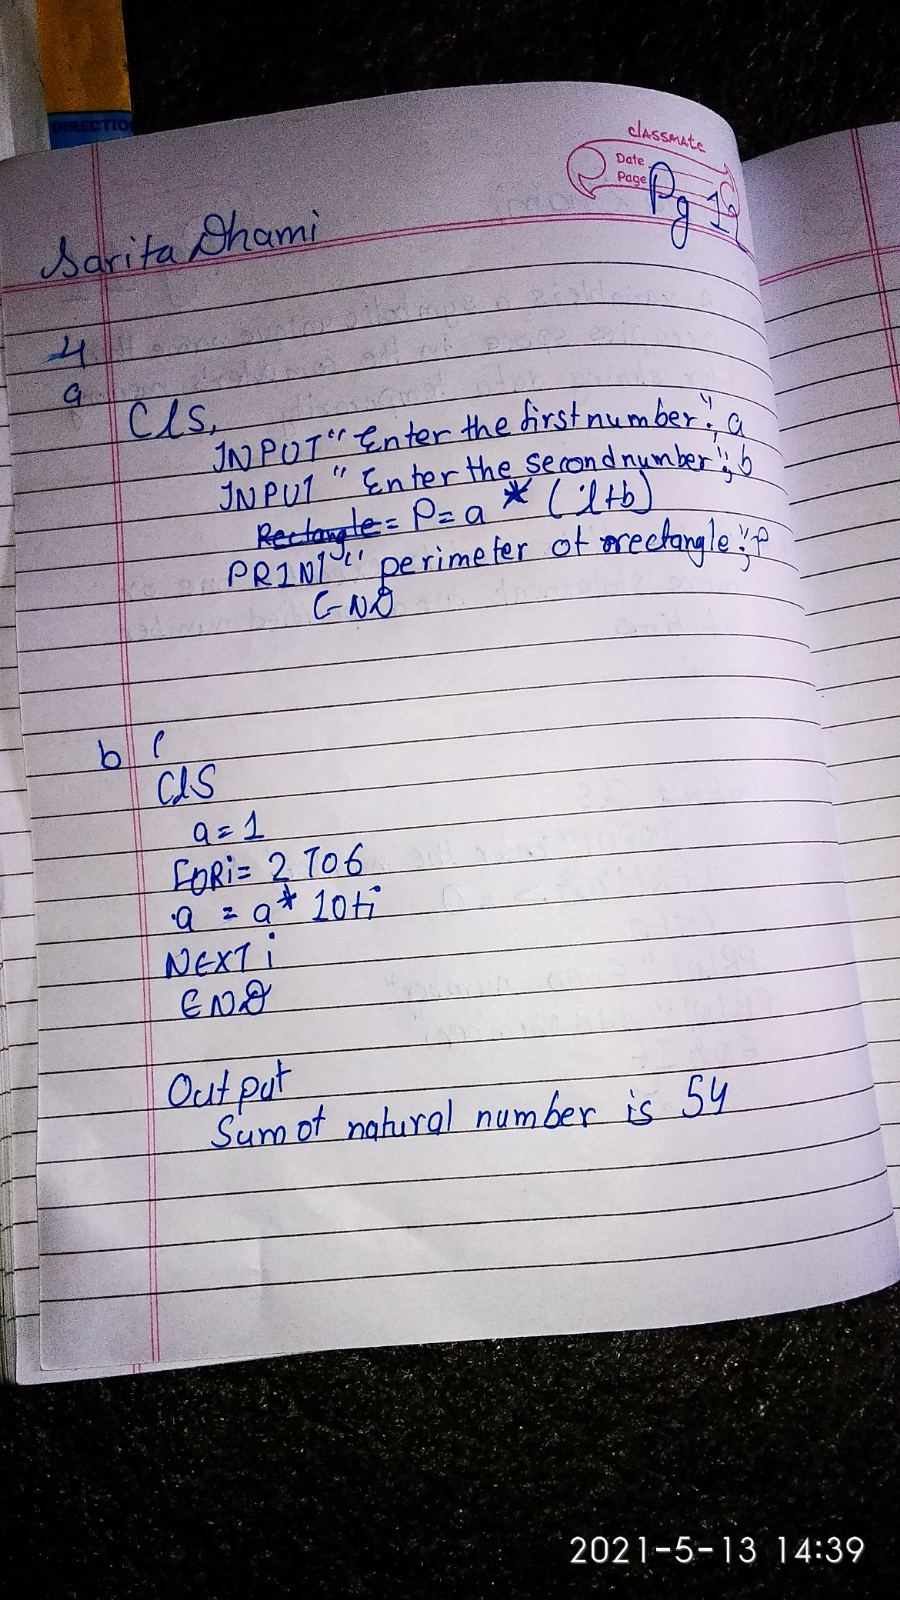 DIRECTIO
classmate
Date
Page Pg 12
Sarita Dhami
4
a
Cls,
INPUT "Enter the first number"; a
INPUT "Enter the second number"; b
Rectangle = P = a * (l+b)
PRINT "perimeter of rectangle"; P
END
b
CLS
a = 1
FOR i = 2 TO 6
a = a * 10 + i
NEXT i
END
Output
Sum of natural number is 54
2021-5-13 14:39